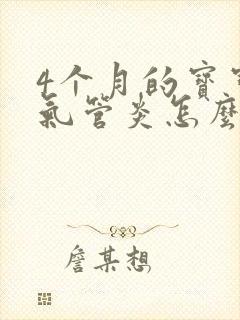 4个月的寳寳
氣管炎怎麽
詹某想